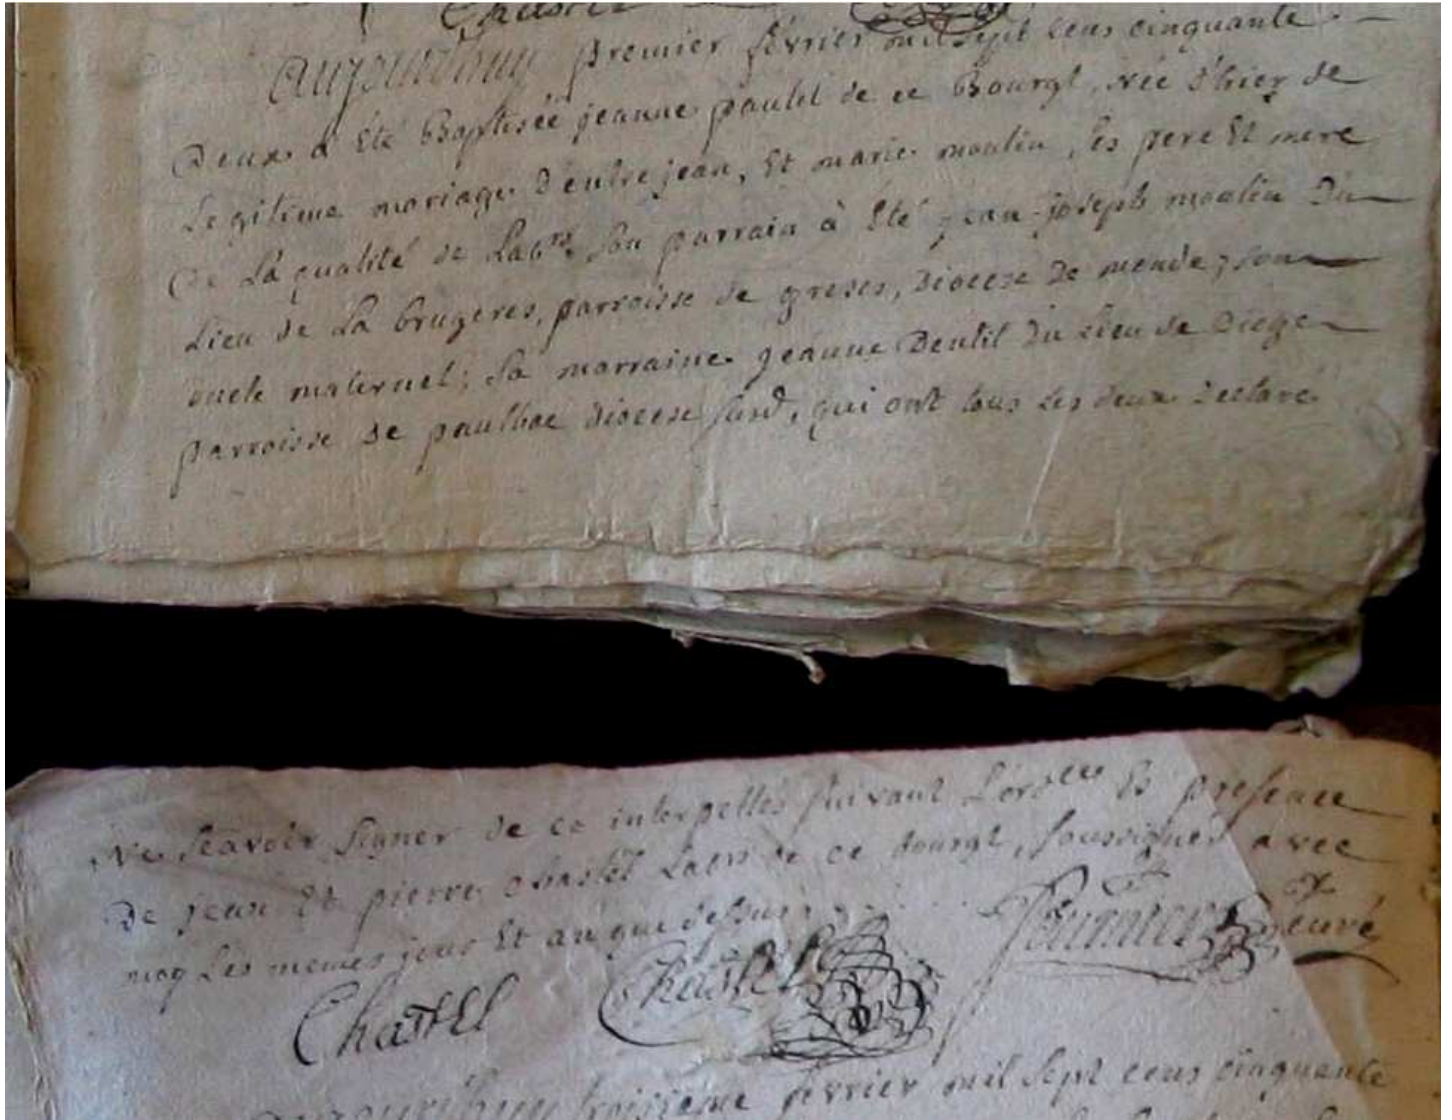 Chastel
Aujourdhuy premier février mil sept cens cinquante
Deux a été Baptisée jeanne paulet de ce Bourgt, née d'hier de
Legitime mariage d'entre jean, Et marie moulin, ses pere Et mere
De La qualité de Labrs, son parrain à Eté jean-joseph moulin Du
Lieu de La brugeres, parroisse de greses, Diocese De mende, son
oncle maternel; sa marraine jeanne Dentil du Lieu de Diege
parroisse de paulhac Diocese surd, qui ont tous Les deux declaré
Ne scavoir signer de ce interpellés suivant L'ordce Es presence
De jean Et pierre Chastel Labrs de ce bourgt, soussignés avec
moy Les memes jour Et an que dessus
Chastel Chastel fournier curé
Aujourdhuy troisieme fevrier mil sept cens cinquante